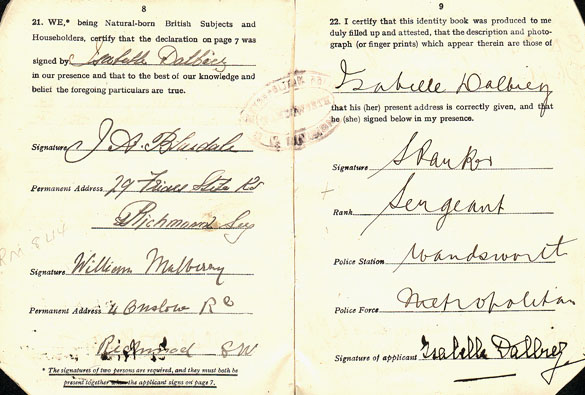 8
21. WE,* being Natural-born British Subjects and
Householders, certify that the declaration on page 7 was
signed by Isabella Dalbiez
in our presence and that to the best of our knowledge and
belief the foregoing particulars are true.
Signature J A. Blasdale
Permanent Address 29 Rd
Richmond
Signature William Mulberry
Permanent Address 4 Onslow Rd
Richmond SW
* The signatures of two persons are required, and they must both be
present together when the applicant signs on page 7.
9
22. I certify that this identity book was produced to me
duly filled up and attested, that the description and photo-
graph (or finger prints) which appear therein are those of
Isabelle Dalbiez
that his (her) present address is correctly given, and that
he (she) signed below in my presence.
Signature
Rank Sergeant
Police Station Wandsworth
Police Force Metropolitan
Signature of applicant Isabella Dalbiez